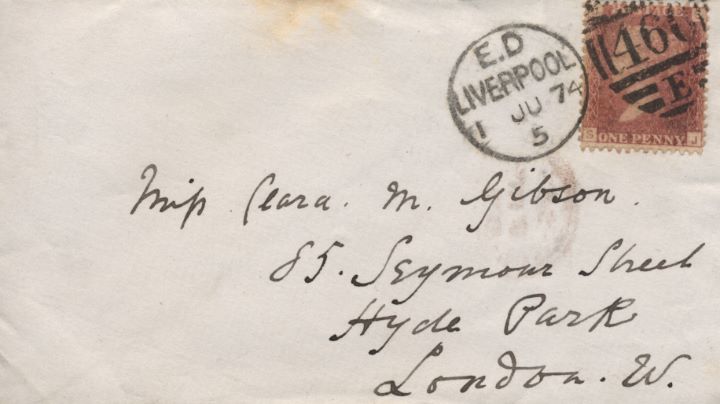 E.D
LIVERPOOL
1 JU 74
5
466
E
S ONE PENNY J
Miss Clara. M. Gibson.
85. Seymour Street
Hyde Park
London. W.